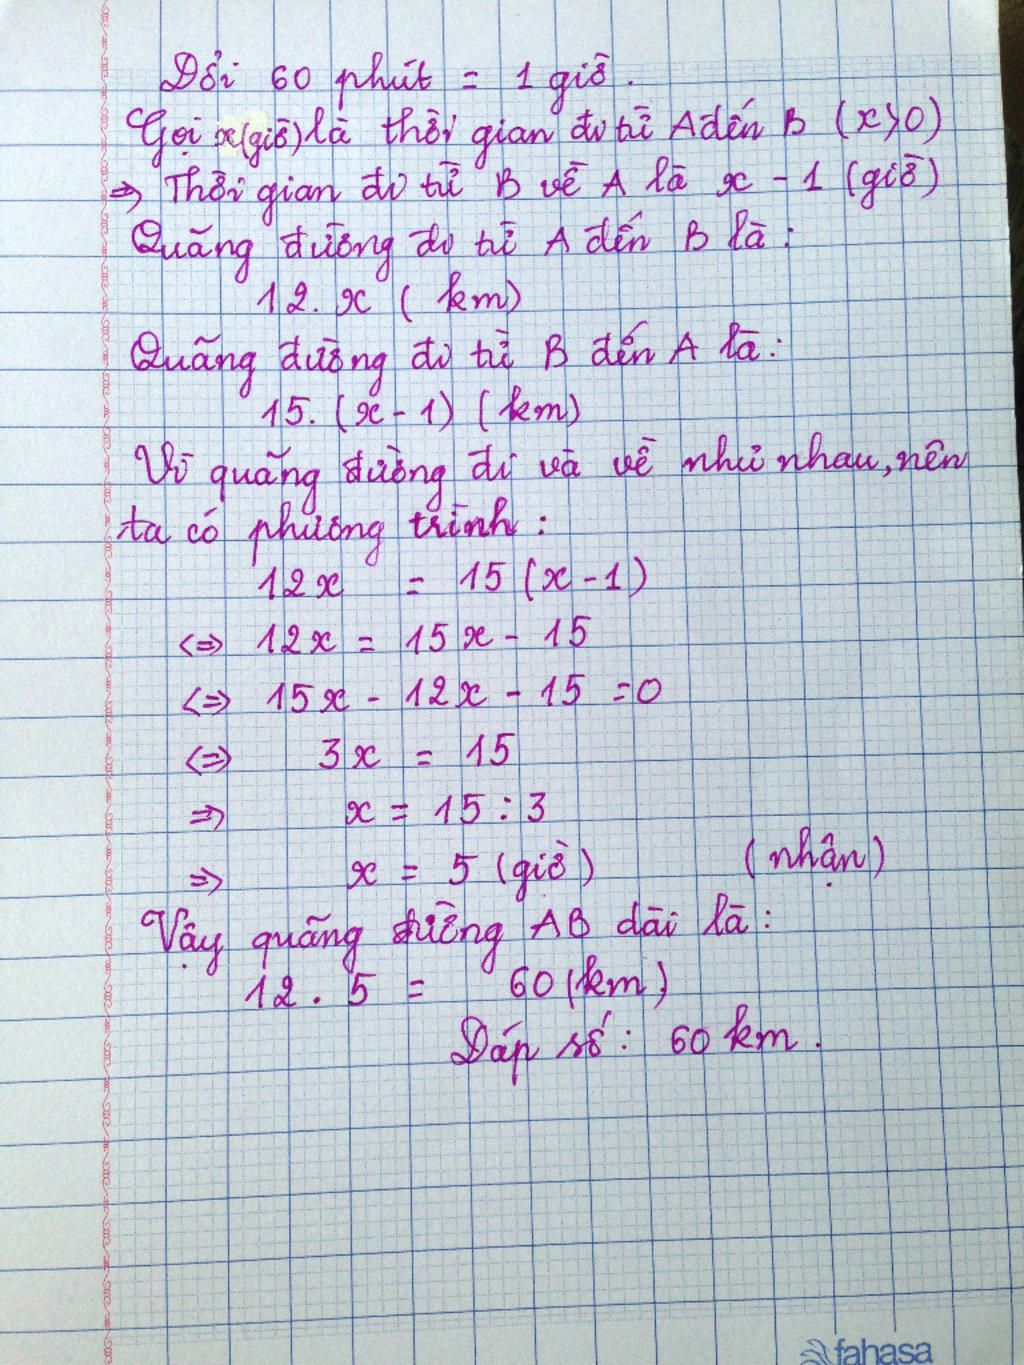 Đổi 60 phút = 1 giờ.
Gọi x(giờ) là thời gian đi từ A đến B (x>0)
=> Thời gian đi từ B về A là x - 1 (giờ)
Quãng đường đi từ A đến B là:
12. x (km)
Quãng đường đi từ B đến A là:
15. (x - 1) (km)
Vì quãng đường đi và về như nhau, nên
ta có phương trình:
12x = 15 (x - 1)
<=> 12x = 15x - 15
<=> 15x - 12x - 15 = 0
<=> 3x = 15
=> x = 15 : 3
=> x = 5 (giờ) (nhận)
Vậy quãng đường AB dài là:
12 . 5 = 60 (km)
Đáp số: 60 km.
fahasa